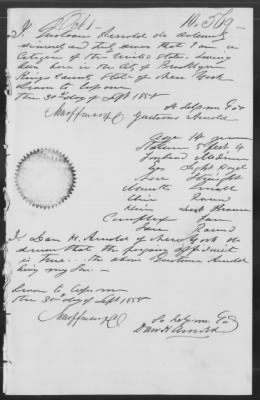 I. Gustavus Arnold do solemnly
sincerely and duly swear that I am a
Citizen of the United States, having
been born in the City of Brooklyn
Kings County State of New York
Sworn to before me
this 30th day of Sept 1858
So help me God
Gustavus Arnold
Age 14 years
Stature 5 feet 4
Forehead Medium
Eyes Light
Nose Straight
Mouth Small
Chin Round
Hair Dark Brown
Complex Fair
Face Round
I Dan H. Arnold of New York do
swear that the foregoing affidavit
is true the above Gustavus Arnold
being my Son
Sworn to before me
this 30th day of Sept 1858
So help me God
Dan H Arnold